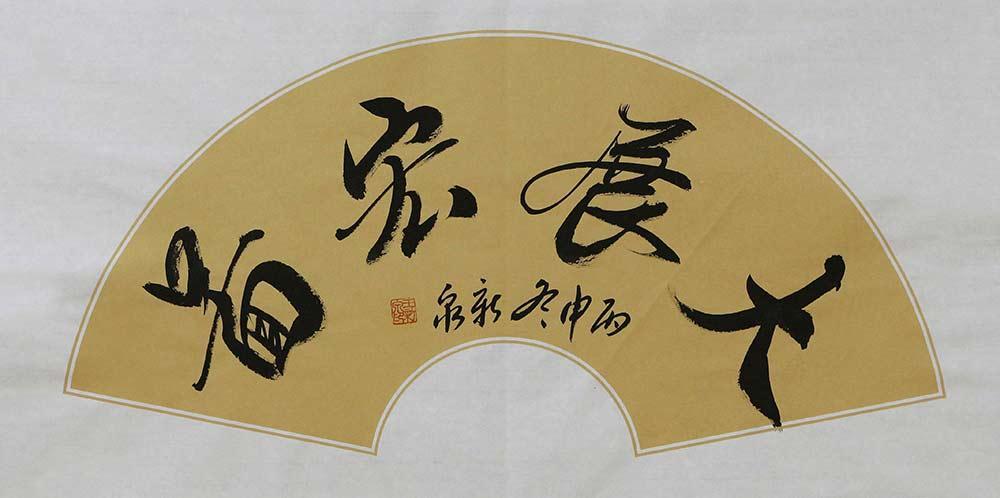 大展宏图
丙申冬新泉